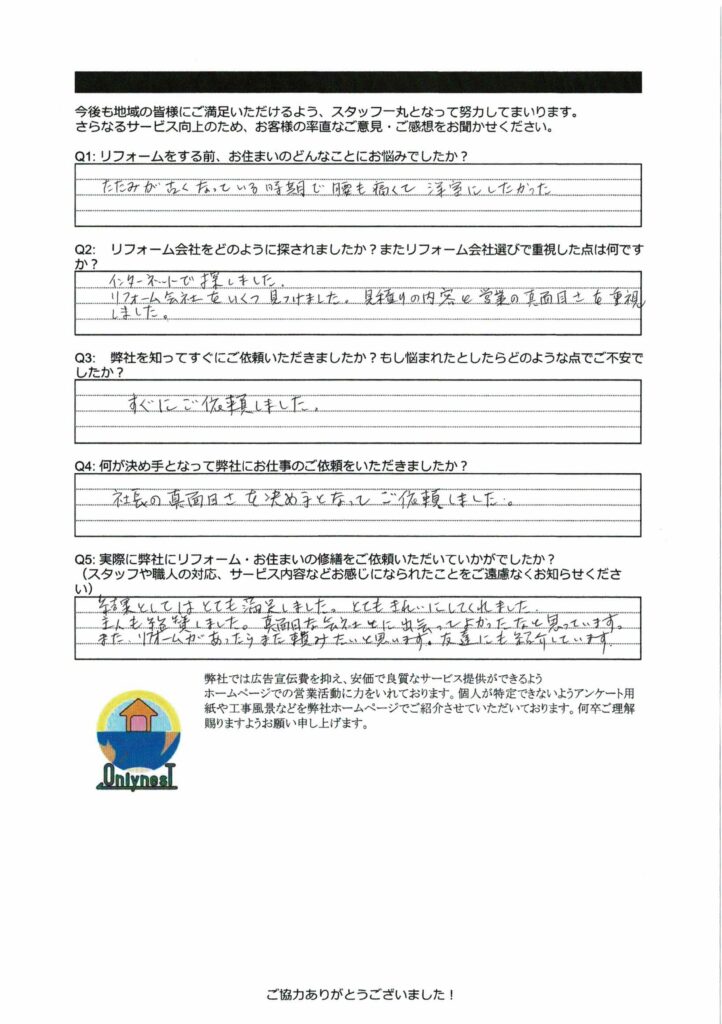 今後も地域の皆様にご満足いただけるよう、スタッフ一丸となって努力してまいります。
さらなるサービス向上のため、お客様の率直なご意見・ご感想をお聞かせください。
Q1: リフォームをする前、お住まいのどんなことにお悩みでしたか？
たたみが古くなっている時期で腰も痛くて洋室にしたかった
Q2:　リフォーム会社をどのように探されましたか？またリフォーム会社選びで重視した点は何です
か？
インターネットで探しました。
リフォーム会社をいくつ見つけました。見積りの内容と営業の真面目さを重視
しました。
Q3:　弊社を知ってすぐにご依頼いただきましたか？もし悩まれたとしたらどのような点でご不安で
したか？
すぐにご依頼しました。
Q4: 何が決め手となって弊社にお仕事のご依頼をいただきましたか？
社長の真面目さを決め手となってご依頼しました。
Q5: 実際に弊社にリフォーム・お住まいの修繕をご依頼いただいていかがでしたか？
（スタッフや職人の対応、サービス内容などお感じになられたことをご遠慮なくお知らせくださ
い）
結果としてはとても満足しました。とてもきれいにしてくれました。
主人も絶賛しました。真面目な会社に出会ってよかったなと思っています。
また、リフォームがあったらまた頼みたいと思います。友達にも紹介しています。
弊社では広告宣伝費を抑え、安価で良質なサービス提供ができるよう
ホームページでの営業活動に力をいれております。個人が特定できないようアンケート用
紙や工事風景などを弊社ホームページでご紹介させていただいております。何卒ご理解
賜りますようお願い申し上げます。
OnlynesT
ご協力ありがとうございました！